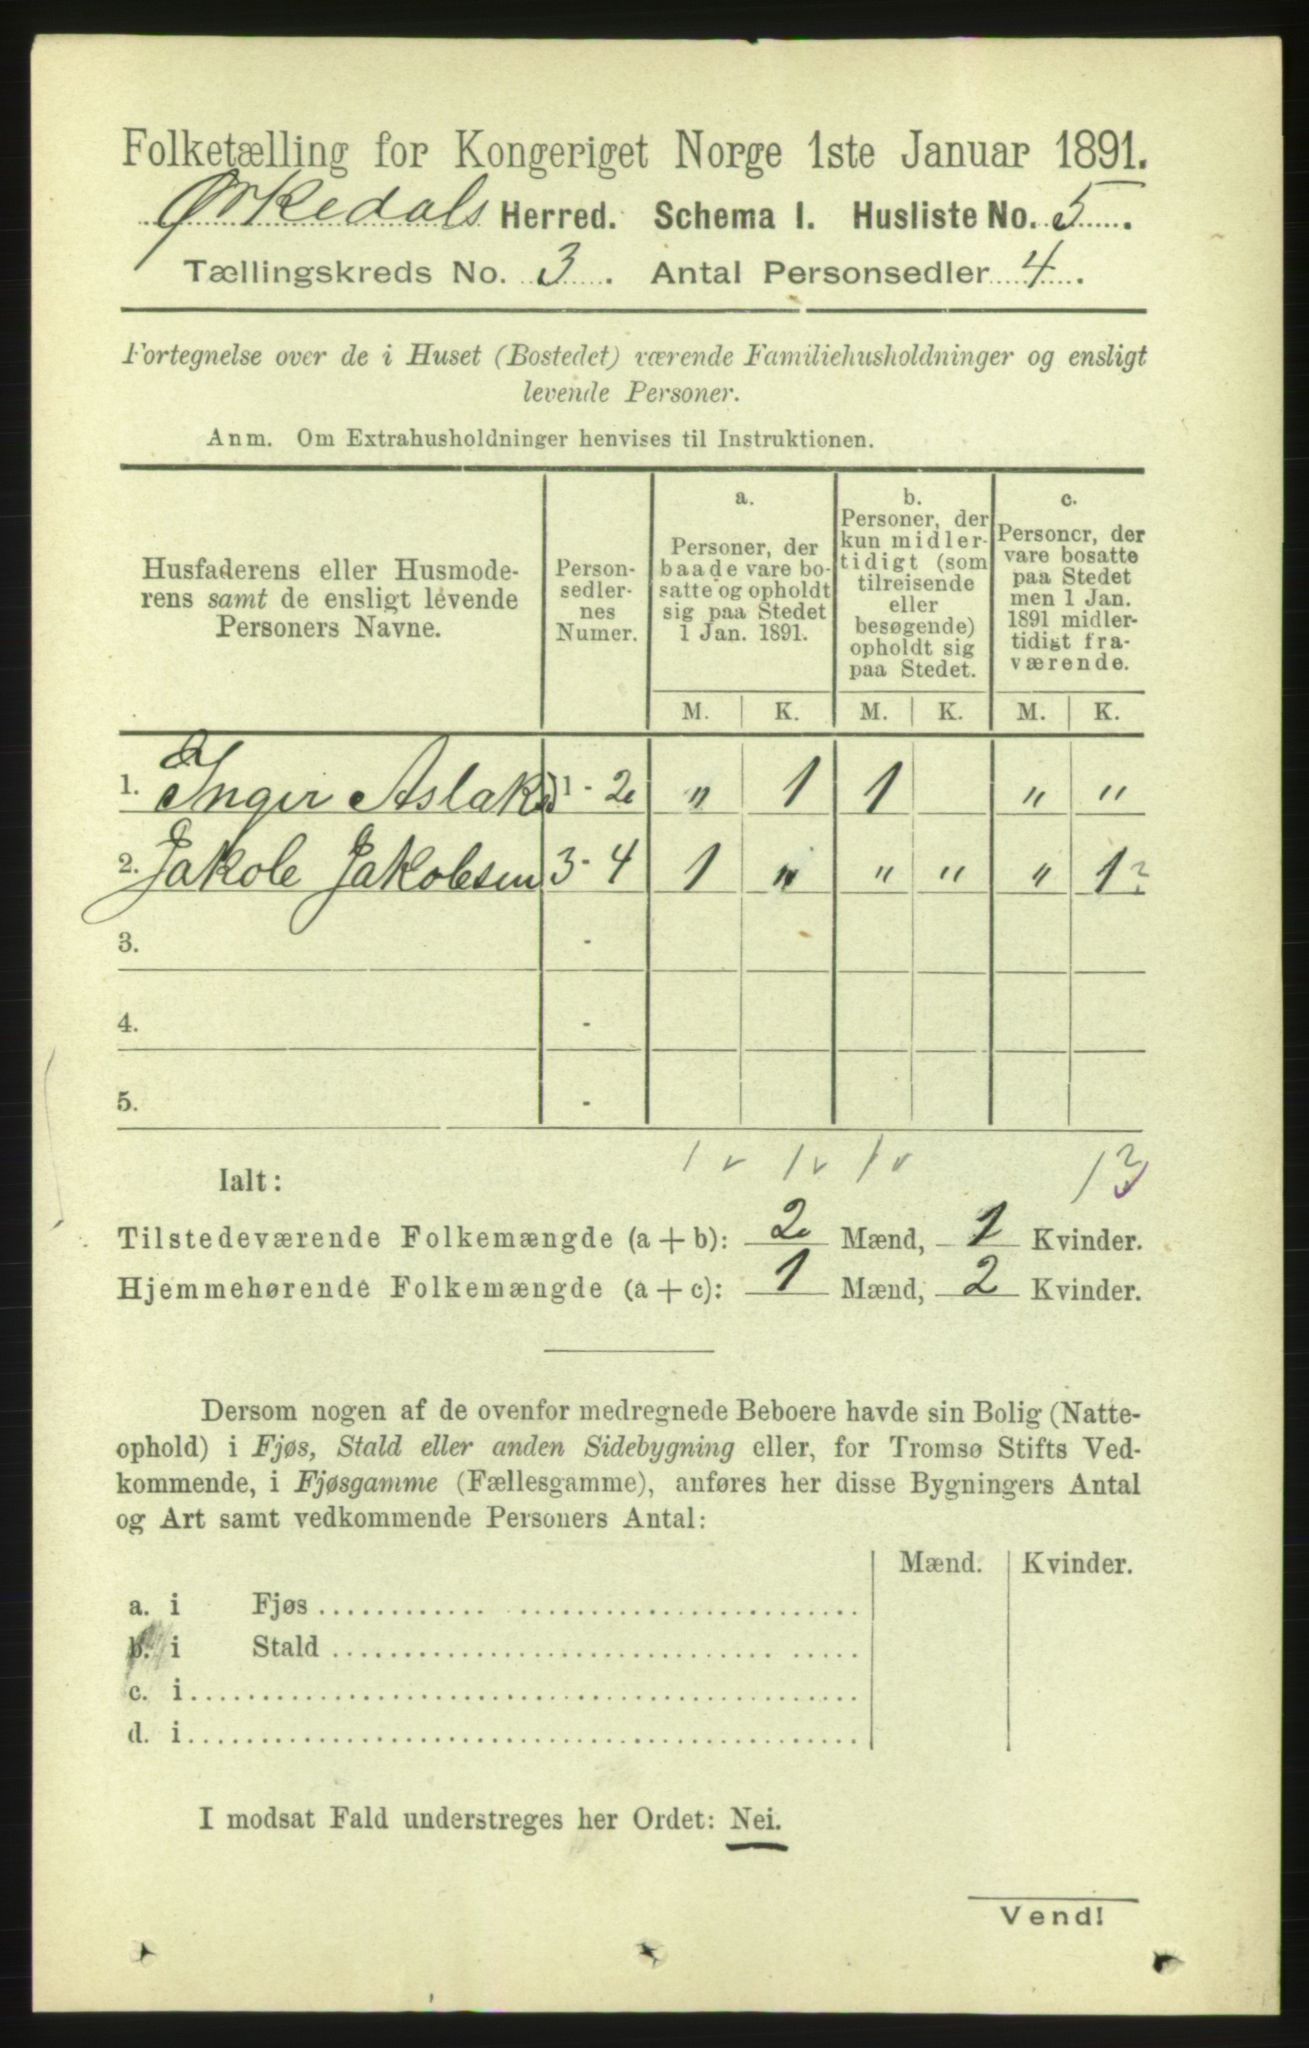 Folketælling for Kongeriget Norge 1ste Januar 1891.
Ørkedals Herred. Schema I. Husliste No. 5.
Tællingskreds No. 3. Antal Personsedler 4.
Fortegnelse over de i Huset (Bostedet) værende Familiehusholdninger og ensligt
levende Personer.
Anm. Om Extrahusholdninger henvises til Instruktionen.
Husfaderens eller Husmode-
rens samt de ensligt levende
Personers Navne.
Person-
sedler-
nes
Numer.
a.
Personer, der
baade vare bo-
satte og opholdt
sig paa Stedet
1 Jan. 1891.
b.
Personer, der
kun midler-
tidigt (som
tilreisende
eller
besøgende)
opholdt sig
paa Stedet.
c.
Personer, der
vare bosatte
paa Stedet
men 1 Jan.
1891 midler-
tidigt fra-
værende.
M. K. M. K. M. K.
1. Inger Aslaks 1 - 2 " 1 1 " "
2. Jakob Jakobsen 3 - 4 1 " " " " 1 ?
3. -
4. -
5. -
1 v 1 v 1 v 1
Ialt:
Tilstedeværende Folkemængde (a + b): 2 Mænd, 1 Kvinder.
Hjemmehørende Folkemængde (a + c): 1 Mænd, 2 Kvinder.
Dersom nogen af de ovenfor medregnede Beboere havde sin Bolig (Natte-
ophold) i Fjøs, Stald eller anden Sidebygning eller, for Tromsø Stifts Ved-
kommende, i Fjøsgamme (Fællesgamme), anføres her disse Bygningers Antal
og Art samt vedkommende Personers Antal:
Mænd. Kvinder.
a. i Fjøs
b. i Stald
c. i
d. i
I modsat Fald understreges her Ordet: Nei.
Vend!